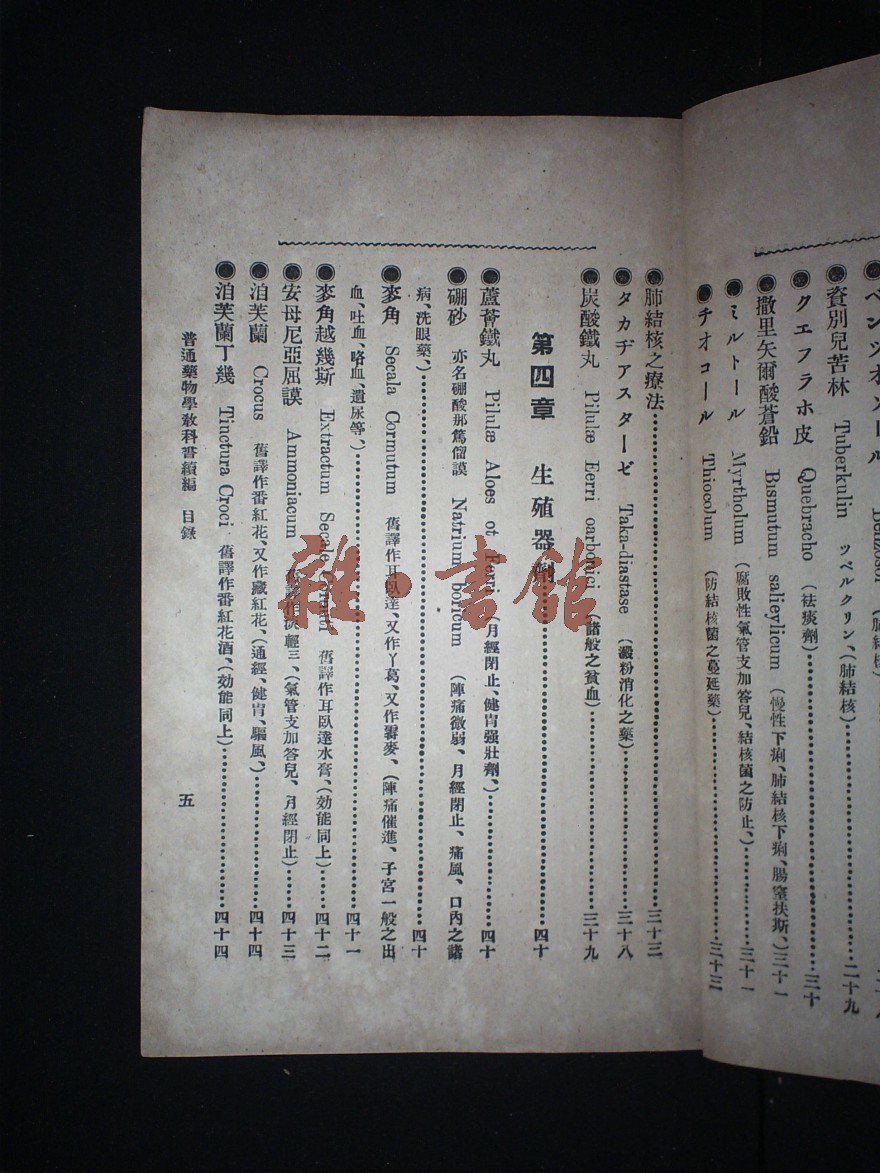 ベンツオゾール Benzosol (肺結核)
資別兒苦林 Tuberkulin ツベルクリン、(肺結核)………二十九
クエフラホ皮 Quebracho (袪痰劑)………三十
撒里矢爾酸蒼鉛 Bismutum salieylicum (慢性下痢、肺結核下痢、腸窒扶斯、)三十一
ミルトール Myrtholum (腐敗性氣管支加答兒、結核菌之防止、)………三十一
チオコール Thiocolum (防結核菌之蔓延藥)………三十三
肺結核之療法………三十三
タカヂアスターゼ Taka-diastase (澱粉消化之藥)………三十八
炭酸鐵丸 Pilulæ Eerri oarbonici (諸般之貧血)………三十九
第四章 生殖器劑………四十
蘆薈鐵丸 Pilulæ Aloes ot Ferri (月經閉止、健胃强壯劑、)………四十
硼砂 亦名硼酸那篤僧謨 Natrium boricum (陣痛微弱、月經閉止、痛風、口內之諸
病、洗眼藥、)………四十
麥角 Secala Cormutum 舊譯作耳臥達、又作丫葛、又作霉麥、(陣痛催進、子宮一般之出
血、吐血、咯血、遺尿等、)………四十一
麥角越幾斯 Extractum Secale 舊譯作耳臥達水膏、(効能同上)………四十二
安母尼亞屈謨 Ammoniacum 舊譯作淡輕三、(氣管支加答兒、月經閉止)………四十三
泊芙蘭 Crocus 舊譯作番紅花、又作藏紅花、(通經、健胃、驅風、)………四十四
泊芙蘭丁幾 Tinctura Croci 舊譯作番紅花酒、(効能同上)………四十四
普通藥物學敎科書續編 目錄 五
雜·書館